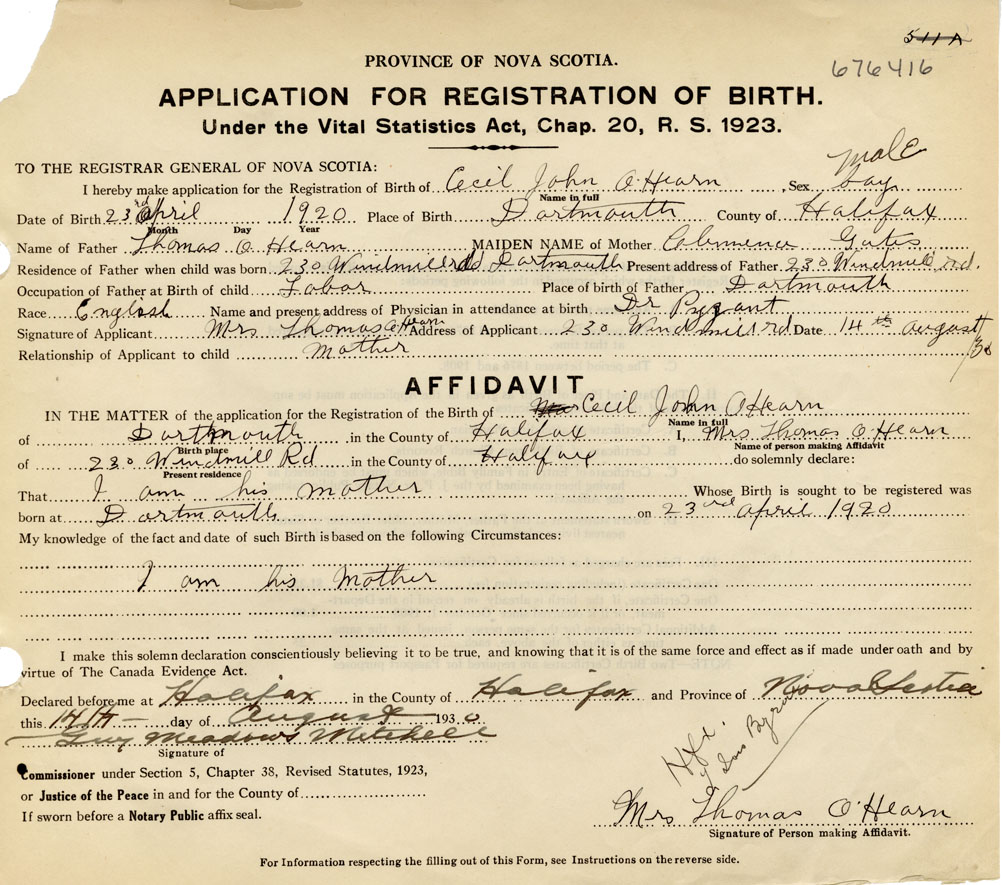 511A
676416
PROVINCE OF NOVA SCOTIA.
APPLICATION FOR REGISTRATION OF BIRTH.
Under the Vital Statistics Act, Chap. 20, R. S. 1923.
TO THE REGISTRAR GENERAL OF NOVA SCOTIA:
Male
I hereby make application for the Registration of Birth of Cecil John O'Hearn, Sex boy
Name in full
Date of Birth 23rd April 1920 Place of Birth Dartmouth County of Halifax
Month Day Year
Name of Father Thomas O Hearn MAIDEN NAME of Mother Clemence Gates
Residence of Father when child was born 230 Windmill rd Dartmouth Present address of Father 230 Windmill rd.
Occupation of Father at Birth of child Labor Place of birth of Father Dartmouth
Race English Name and present address of Physician in attendance at birth Dr
Signature of Applicant Mrs Thomas O Hearn Address of Applicant 230 Windmill rd Date 14th August /30
Relationship of Applicant to child mother
AFFIDAVIT
IN THE MATTER of the application for the Registration of the Birth of Cecil John O Hearn
Name in full
of Dartmouth in the County of Halifax I, Mrs Thomas O'Hearn
Birth place Name of person making Affidavit
of 230 Windmill Rd in the County of Halifax do solemnly declare:
Present residence
That I am his mother Whose Birth is sought to be registered was
born at Dartmouth on 23rd April 1920
My knowledge of the fact and date of such Birth is based on the following Circumstances:
I am his Mother
I make this solemn declaration conscientiously believing it to be true, and knowing that it is of the same force and effect as if made under oath and by
virtue of The Canada Evidence Act.
Declared before me at Halifax in the County of Halifax and Province of Nova Scotia
this 14th day of August 1930
Guy Meadows Mitchell
Signature of
Commissioner under Section 5, Chapter 38, Revised Statutes, 1923,
or Justice of the Peace in and for the County of
If sworn before a Notary Public affix seal.
Hfx
Mrs Thomas O'Hearn
Signature of Person making Affidavit.
For Information respecting the filling out of this Form, see Instructions on the reverse side.